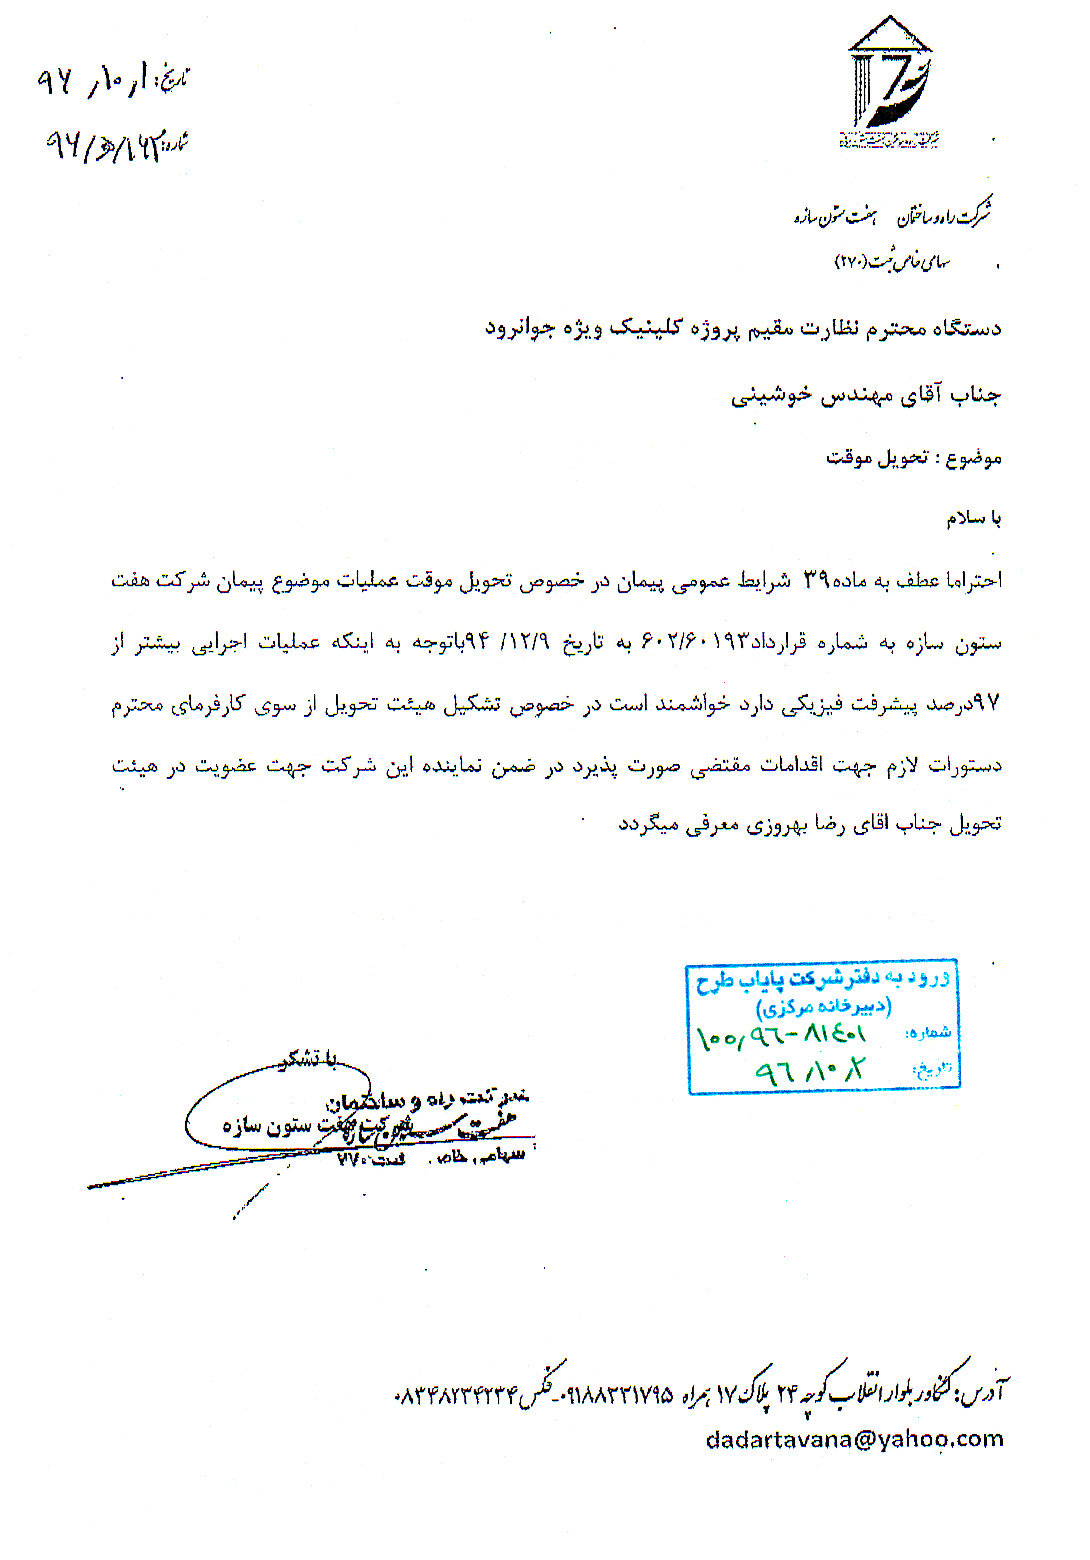 تاریخ: ۹۶/۱۰/۱
شماره: ۹۶/ه/۱۶۲
شرکت راه و ساختمان هفت ستون سازه
سهامی خاص ثبت (۲۷۰)
دستگاه محترم نظارت مقیم پروژه کلینیک ویژه جوانرود
جناب آقای مهندس خوشینی
موضوع : تحویل موقت
با سلام
احتراما عطف به ماده۳۹ شرایط عمومی پیمان در خصوص تحویل موقت عملیات موضوع پیمان شرکت هفت
ستون سازه به شماره قرارداد۶۰۲/۶۰۱۹۳ به تاریخ ۹۴/۱۲/۹باتوجه به اینکه عملیات اجرایی بیشتر از
۹۷درصد پیشرفت فیزیکی دارد خواشمند است در خصوص تشکیل هیئت تحویل از سوی کارفرمای محترم
دستورات لازم جهت اقدامات مقتضی صورت پذیرد در ضمن نماینده این شرکت جهت عضویت در هیئت
تحویل جناب اقای رضا بهروزی معرفی میگردد
ورود به دفتر شرکت پایاب طرح
(دبیرخانه مرکزی)
شماره: ۱۰۰/۹۶-۸۱۴۰۱
تاریخ: ۹۶/۱۰/۲
با تشکر
شرکت راه و ساختمان
شرکت هفت ستون سازه
سهامی خاص . ثبت ۲۷۰
آدرس: کنگاور بلوار انقلاب کوچه ۲۴ پلاک ۱۷ همراه ۰۹۱۸۸۳۳۱۷۹۵-فکس ۰۸۳۴۸۲۳۴۲۳۴
dadartavana@yahoo.com